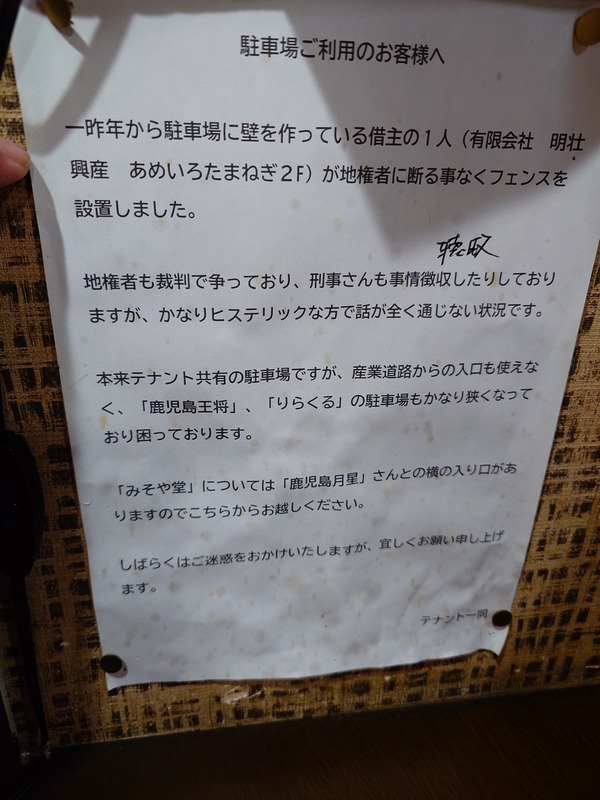 駐車場ご利用のお客様へ
一昨年から駐車場に壁を作っている借主の１人（有限会社　明壮
興産　あめいろたまねぎ２F）が地権者に断る事なくフェンスを
設置しました。
聴収
地権者も裁判で争っており、刑事さんも事情徴収したりしており
ますが、かなりヒステリックな方で話が全く通じない状況です。
本来テナント共有の駐車場ですが、産業道路からの入口も使えな
く、「鹿児島王将」、「りらくる」の駐車場もかなり狭くなって
おり困っております。
「みそや堂」については「鹿児島月星」さんとの横の入り口があ
りますのでこちらからお越しください。
しばらくはご迷惑をおかけいたしますが、宜しくお願い申し上げ
ます。
テナント一同